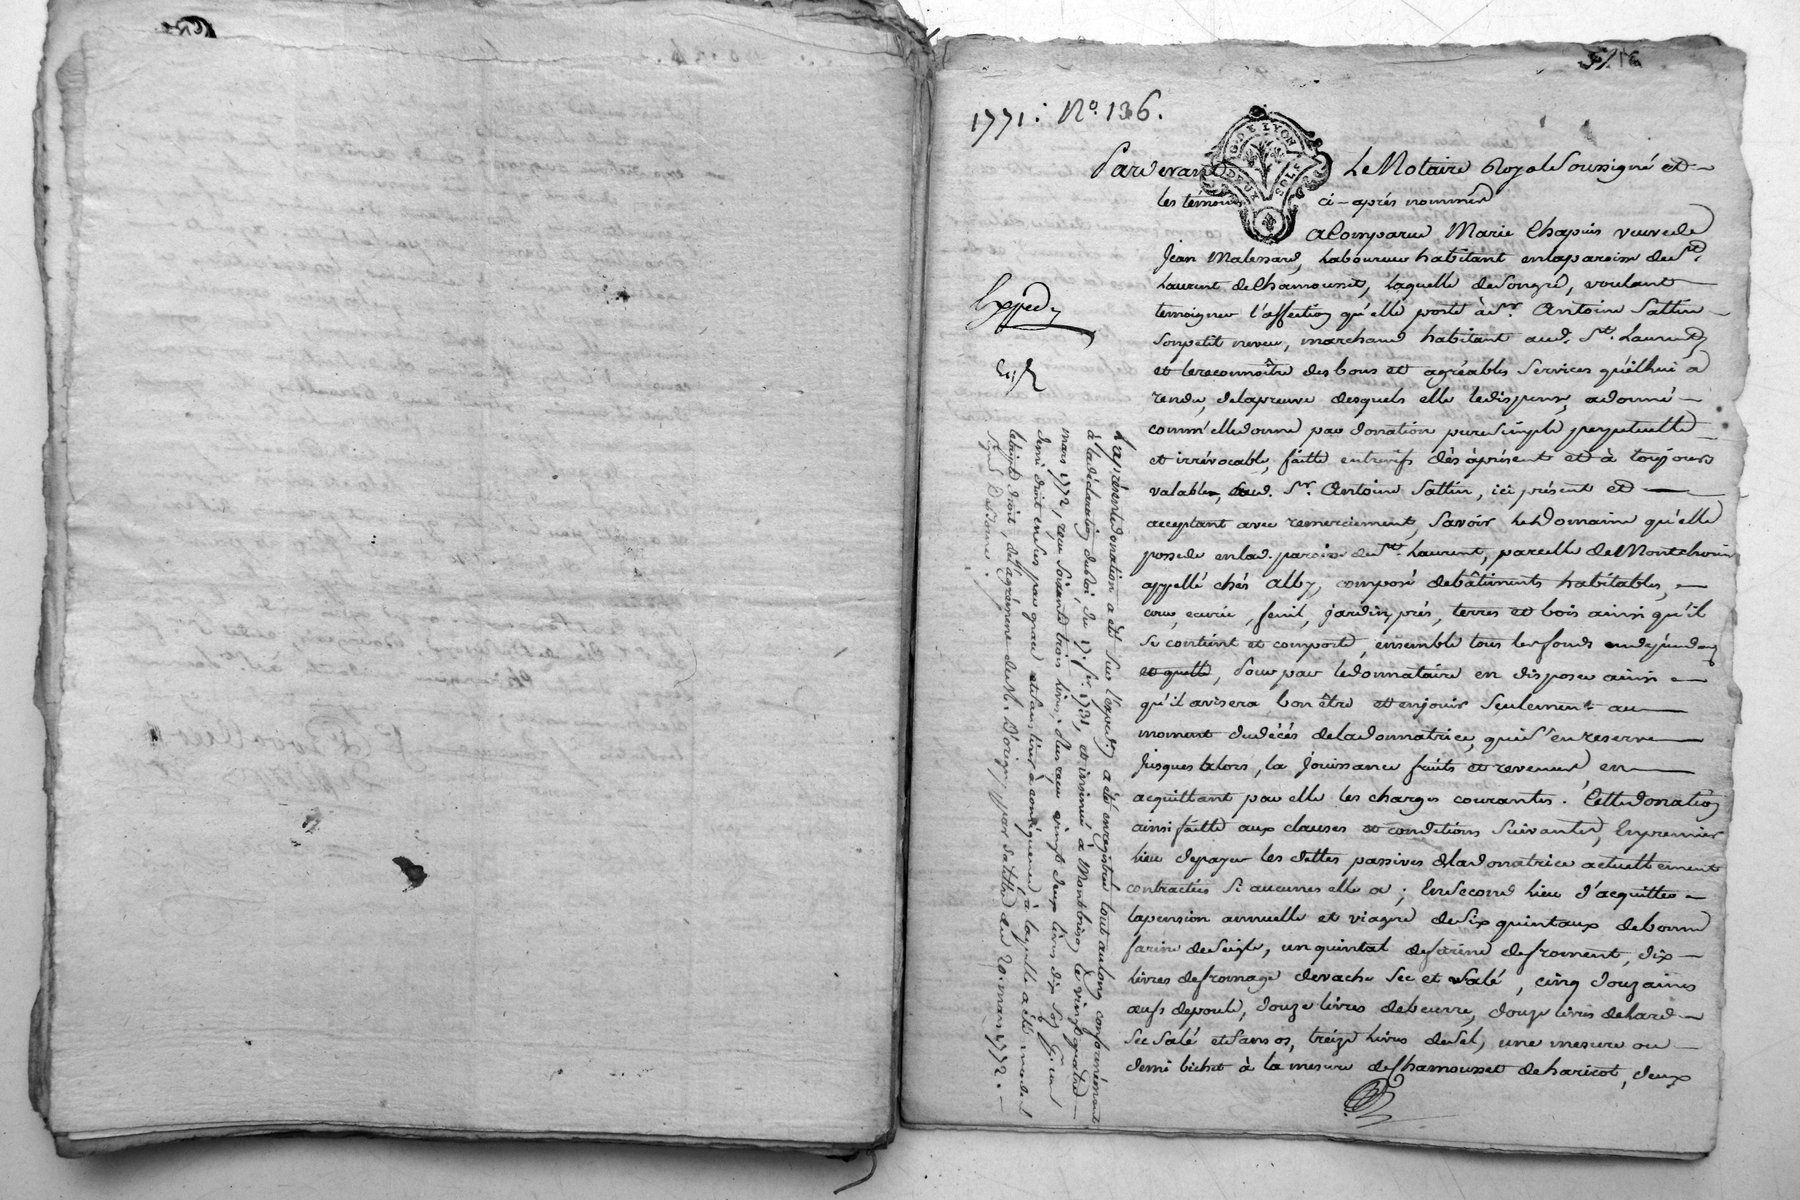 1771. No. 136.
G. DE LYON
DEUX SOLS
Pardevant Le Notaire Royal Soussigné et
les témoins ci-après nommés
a Comparu Marie Chapuis veuve de
Jean Malessard, Laboureur habitant en la paroisse de St.
Laurent de Chamousset, laquelle de Son gré, voulant
temoigner l'affection qu'elle porte à Sr. Antoine Sattin
Son petit neveu, marchand habitant aud. St. Laurent
et le reconnoître des bons et agréables Services qu'il lui a
rendu, de la preuve desquels elle le dispense, a donné
comm'elle donne par donation pure Simple perpetuelle
et irrévocable, faitte entrevifs dès àprésent et à toujours
valable, aud. Sr. Antoine Sattin, ici présent et
acceptant avec remerciement, Savoir Le Domaine qu'elle
possede en lad. paroisse de St. Laurent, parcelle de
appellé chés Alby, composé de bâtiments habitables,
cour, ecurie, fenil, jardin, prés, terres et bois ainsi qu'il
Se contient et comporte, ensemble tous les fonds en dépendans
et quelle, pour par le donnataire en disposer ainsi
qu'il avisera bon être et en jouir Seulement au
moment du décés de la donnatrice, qui S'en reserve
Jusques alors, la Jouissance fruits et revenus, en
acquittant par elle les charges courantes. Cette donation
ainsi faitte aux clauses et conditions Suivantes, En premier
lieu de payer les dettes passives de la donatrice actuellement
contractées Si aucunes elle a ; En Second lieu d'acquitter
la pension annuelle et viagere de Six quintaux de bonne
farine de Seigle, un quintal de farine de froment, dix
livres de fromage de vache Sec et Salé, cinq douzaines
œufs de poule, douze livres de beurre, douze livres de Lard
Sec Salé et Sans os, treize Livres de Sel, une mesure ou
demi bichet à la mesure de Chamousset de haricot, deux
Expedn
La présente donation a été Sur l'expedn. a été enregistrée tout aulong conformément
à la déclaration du Roi, du 17. fer. 1731, et insinué à Montbrison le vingt quatre
mars 1772, reçu Soixante trois livres, plus reçu vingt deux livres dix Sols
demi droit en Sus par grace et Sans tirer à conséquence, à laquelle a été
le Susdit droit, de l'agrément de M. D'origny par Sa lettre du 20. mars 1772.
Signé